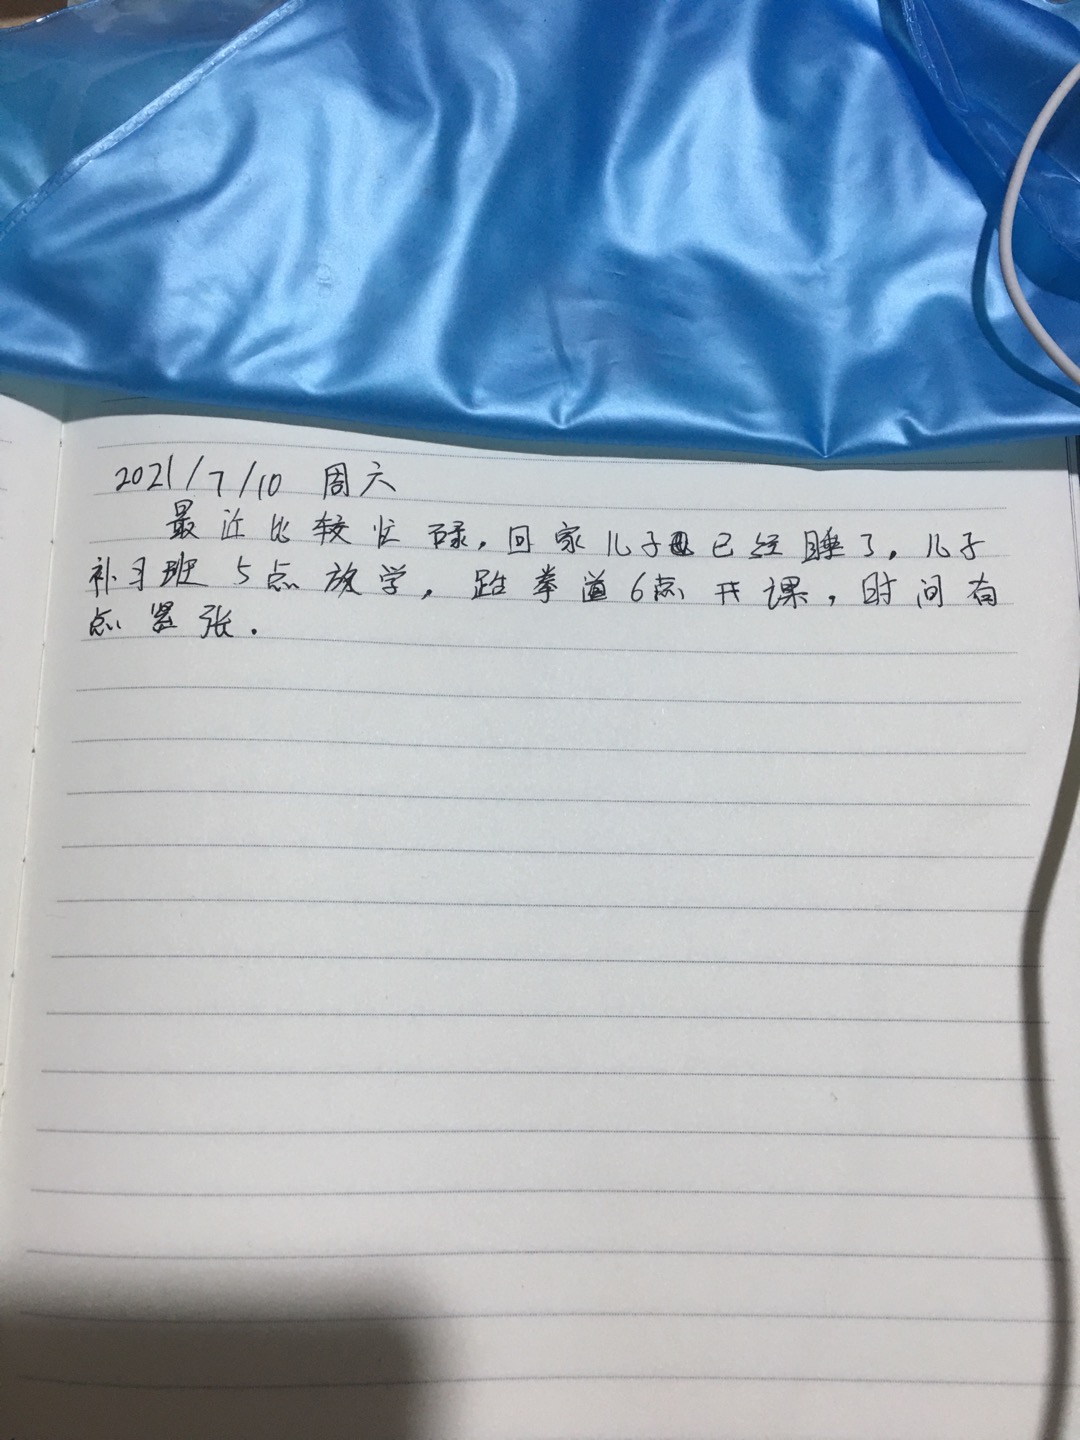 2021/7/10 周六
最近比较忙碌，回家儿子已经睡了，儿子
补习班5点放学，跆拳道6点开课，时间有
点紧张．